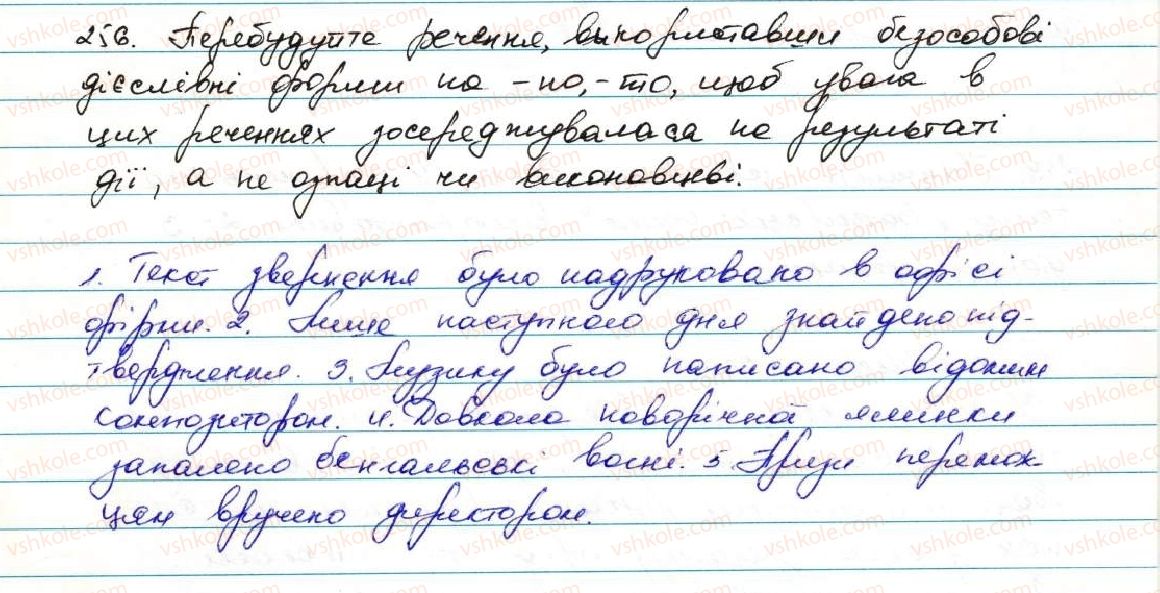 256. Перебудуйте речення, використавши безособові
дієслівні форми на -но, -то, щоб увага в
цих реченнях зосереджувалася на результаті
дії, а не ознаці чи виконавцеві.
1. Текст звернення було надруковано в офісі
фірми. 2. Лише наступного дня знайдено під-
твердження. 3. Музику було написано відомим
композитором. 4. Довкола новорічної ялинки
запалено бенгальські вогні. 5. Призи перемож-
цям вручено директором.
vshkole.com